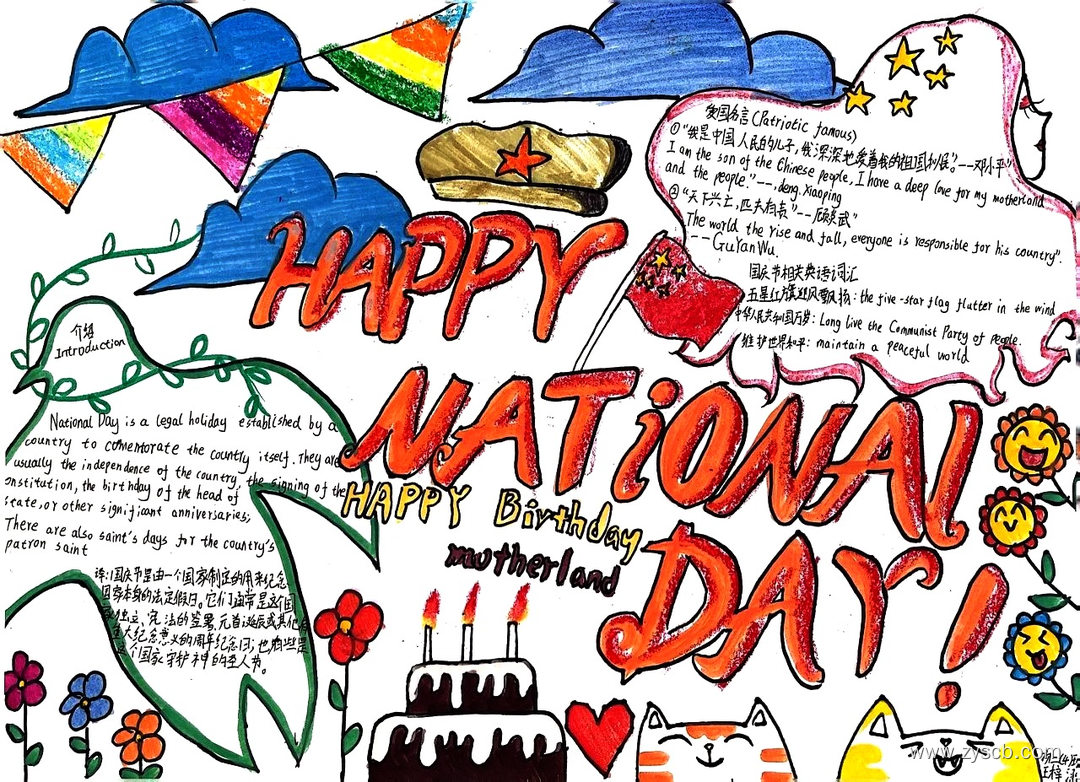 HAPPY
NATiONAl
DAY!
HAPPY Birthday
motherland
爱国名言(Patriotic famous)
①"我是中国人民的儿子,我深深地爱着我的祖国和人民。"--邓小平"
I am the son of the Chinese people, I have a deep love for my motherland
and the people."--, deng.xiaoping
②"天下兴亡,匹夫有责"--顾炎武"
The world the rise and fall, everyone is responsible for his country".
--GuYanWu.
国庆节相关英语词汇
五星红旗迎风飘扬: the five-star flag flutter in the wind
中华人民共和国万岁: Long live the Communist Party of people.
维护世界和平: maintain a peaceful world
介绍
Introduction
National Day is a legal holiday established by a
country to comemtorate the country itself. They are
usually the independence of the country, the signing of the
onstitution, the birthday of the head of
state, or other significant anniversaries;
There are also saint's days for the country's
patron saint
译:国庆节是由一个国家制定的用来纪念
国家本身的法定假日。它们通常是这个国
家独立、宪法的签署、元首诞辰或其他
重大纪念意义的周年纪念日;也有些是
这个国家守护神的圣人节。
www.zyscb.com